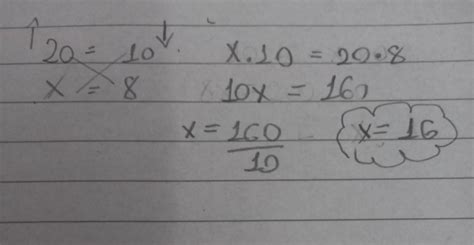 ↑ 20 = 10 ↓
x = 8
x.10 = 20.8
10x = 160
x = 160
10
x = 16